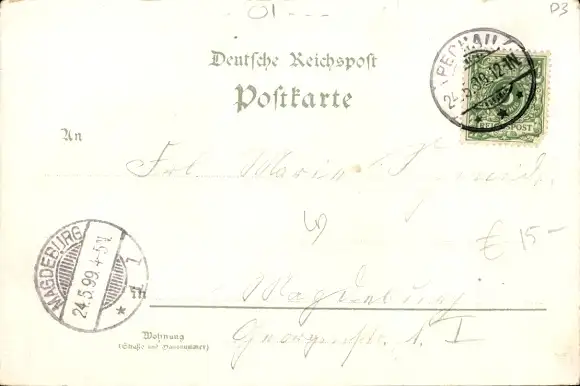 01---
D3
Deutsche Reichspost
Postkarte
PECHAU
24.5.99. 12-1N.
REICHSPOST
An
Frl. Marie
€ 15-
MAGDEBURG
24.5.99. 4-5N.
1
in
Magdeburg
Wohnung
(Straße und Hausnummer)
Georgenstr. 1. I